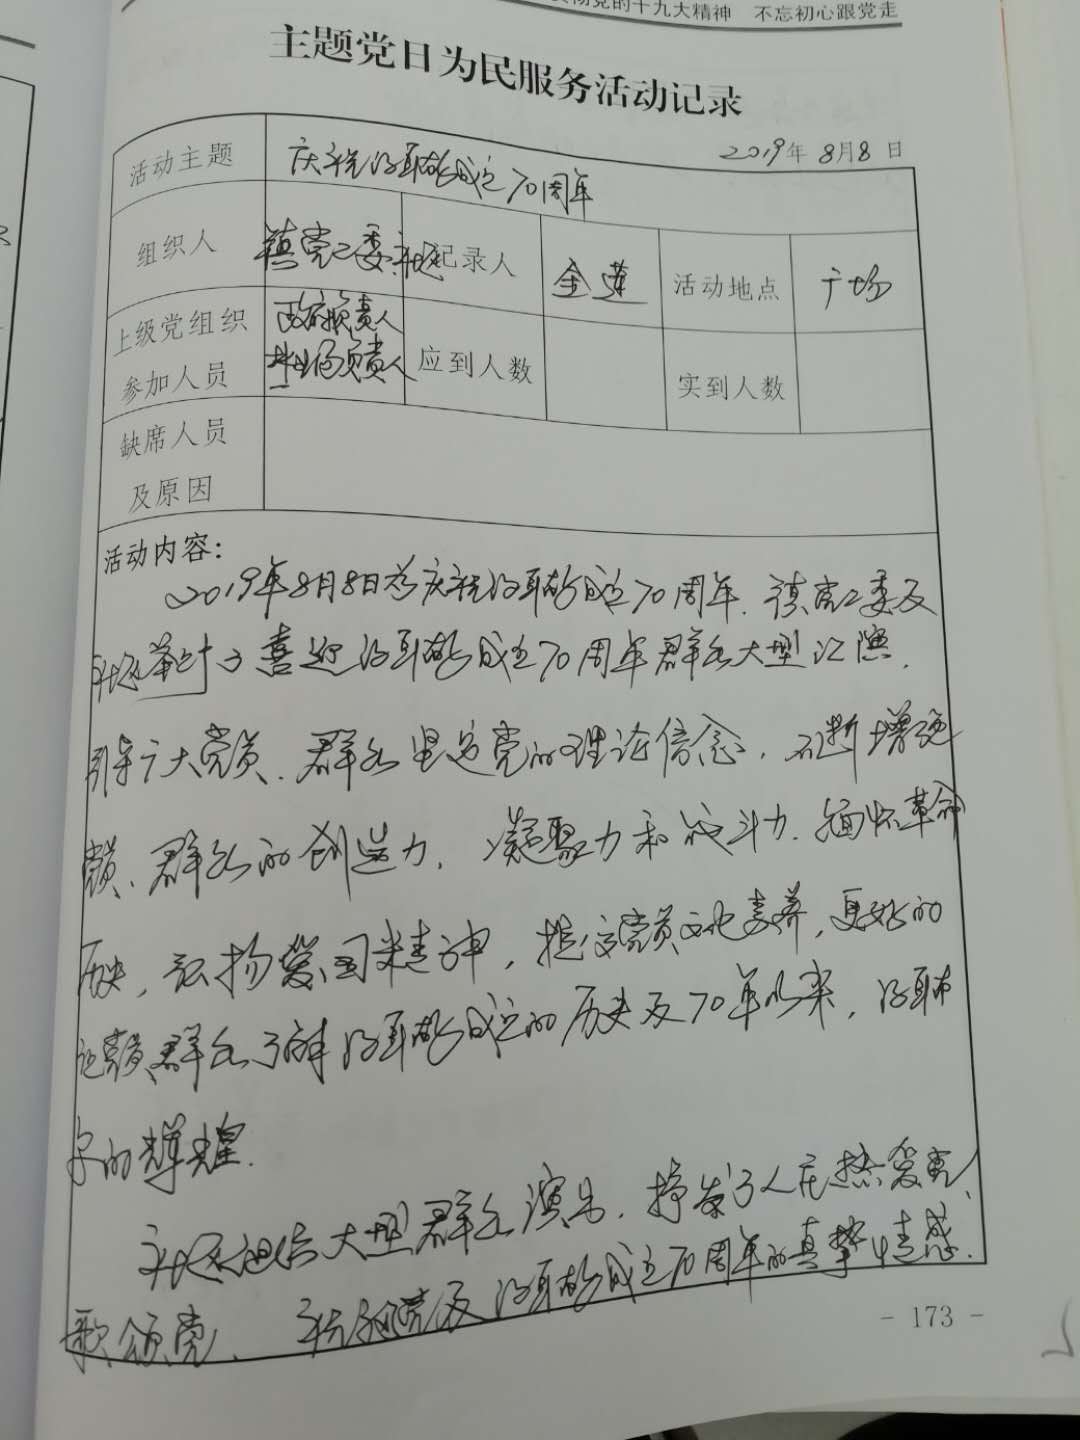 彻党的十九大精神 不忘初心跟党走
主题党日为民服务活动记录
2019年8月8日
活动主题 庆祝 成立70周年
组织人 镇党工委 社区 记录人 金莲 活动地点 广场
上级党组织 政府负责人
参加人员 负责人 应到人数 实到人数
缺席人员
及原因
活动内容：
2019年8月8日为庆祝 成立70周年、镇党工委及
社区举办了喜迎 成立70周年群众大型汇演、
引导广大党员、群众坚定党的理论信念、不断增强
党员、群众的创造力、凝聚力和战斗力、缅怀革命
历史，弘扬爱国精神，提高党员文化素养，更好的
让党员、群众了解 成立的历史及70年以来，
的辉煌.
社区组织大型群众演出、抒发了人民热爱党、
歌颂党、 成立70周年的真挚情感.
- 173 -